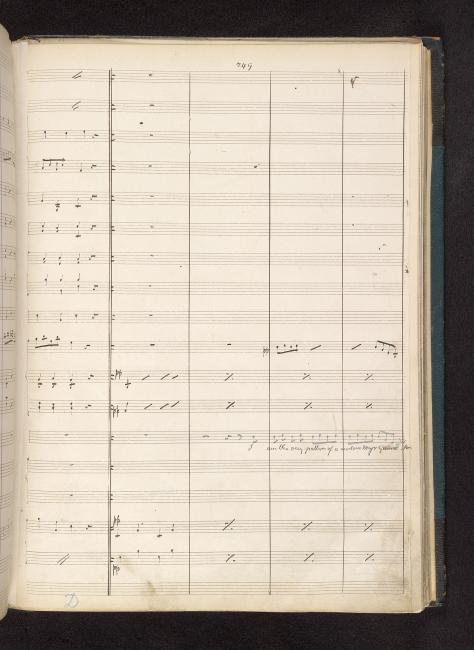 249
I am the very pattern of a modern Major Gineral I've
D